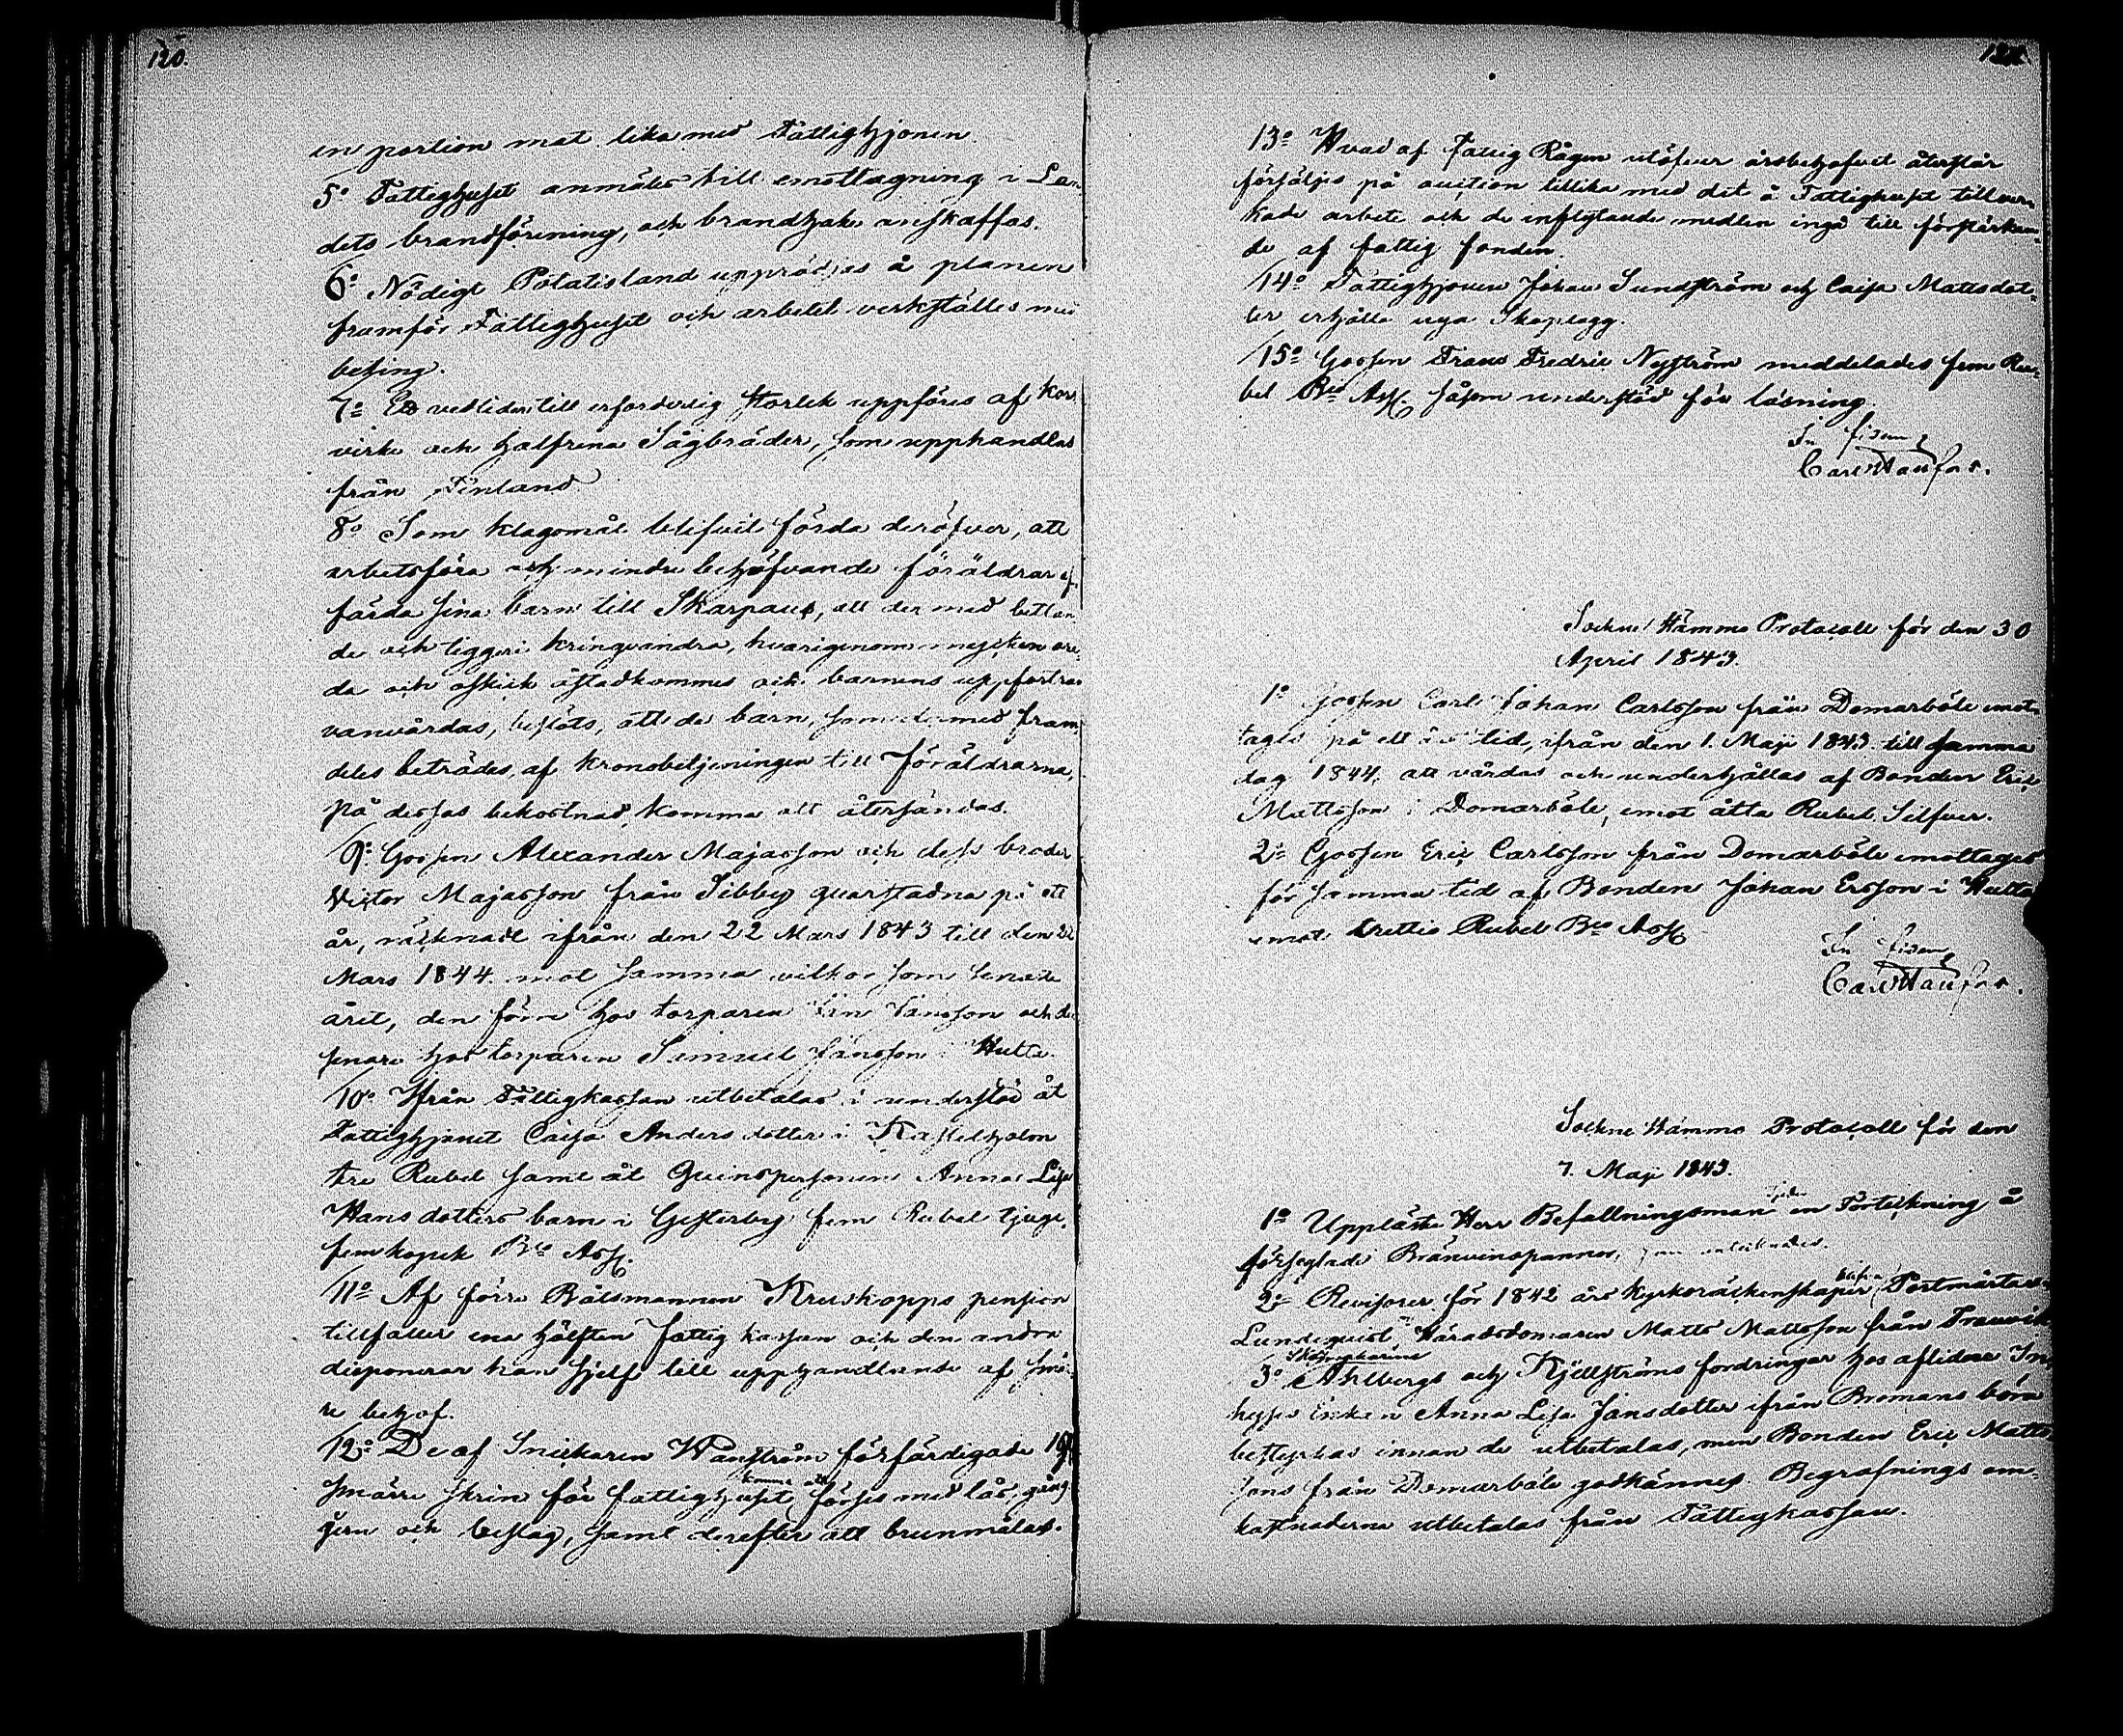 120.
en portion mat lika med Fattighjonen.
5o Fattighuset anmäles till emottagning i Lan-
dets brandförening, och brandhake anskaffas.
6o Nödigt Potatisland upprödjes å planen
framför Fattighuset och arbetet verkställes med
beting.
7o Ett vedlider till erforderlig storlek uppföres af kors
virke och halfrena Sågbräder, som upphandlas
från Finland.
8o Som klagomål blifvit förda deröfver, att
arbetsföra och mindre behöfvande föräldrar af-
färda sina barn till Skarpans, att der med bettlan-
de och tiggeri kringvandra, hvarigenom mycken ore-
da och oskick åstadkommes och barnens uppfostran
vanvårdas, beslöts, att de barn, som dermed fram-
deles beträdes, af kronobetjeningen till Föräldrarna,
på dessas bekostnad, komma att återsändas.
9o Gossen Alexander Majasson och dess broder
Victor Majasson från Tibby quarstadna på ett
år, räknadt ifrån den 22 Mars 1843 till den 22
Mars 1844 mot samma vilkor som senaste
året, den förre hos torparen Jansson och de
senare hos torparen Samuel Jansson i Hulta.
10o Ifrån Fattigkassan utbetalas i understöd åt
Fattighjonet Caisa Andersdotter i Kastelholm
tre Rubel samt åt Qvinspersonen Anna Lisa
Hansdotters barn i Gesterby fem Rubel tjuge
fem kopek Bco Ass.
11o Af förre Båtsmannen Kruskopps pension
tillfaller ena hälften Fattigkassan och den andra
disponerar han sjelf till upphandlande af smär-
re behof.
12o De af Snickaren Wanström förfärdigade 19
smärre skrin för fattighuset komma att förses med lås, gång-
jern och beslag, samt derefter att brunmålas.
121.
13o Hvad af Fattig Rågen utöfver årsbehofvet återstår
försäljes på auction tillika med det å Fattighuset tillver-
kade arbete och de inflytande medlen ingå till förstärkan-
de af fattig fonden.
14o Fattighjonen Johan Sundström och Caisa Mattsdot-
ter erhålla nya Skoplagg.
15o Gossen Frans Fredric Nyström meddelades fem Ru-
bel Bco Ass. såsom understöd för läsning.
In fidem
Carl
Sockne Stämmo Protocoll för den 30
April 1843.
1o Gossen Carl Johan Carlsson från Domarböle emot-
tages på ett års tid, ifrån den 1. Maji 1843 till samma
dag 1844, att vårdas och underhållas af Bonden Eric
Mattsson i Domarböle, emot åtta Rubel Silfver.
2o Gossen Eric Carlsson från Domarböle emottages
för samma tid af Bonden Johan Ersson i Hulta
emot trettio Rubel Bco Ass.
In fidem
Carl
Sockne Stämmo Protocoll för den
7. Maji 1843.
1o Uppläste Herr Befallningsman en Förteckning å
förseglade Bränvinspannor, som antecknades.
2o Revisorer för 1842 års kyrkoräkenskaper blifva
Lundequist Häradsdomaren Matts Mattsson från Tranvik
3o Ahlbergs och Kjellströms fordringar hos aflidne In-
hyses Enkan Anna Lisa Jansdotter ifrån Bromans böra
bestyrkas innan de utbetalas, men Bonden Eric Matts
sons från Domarböle godkännes Begrafnings om-
kostnaderna utbetalas från Fattigkassan.